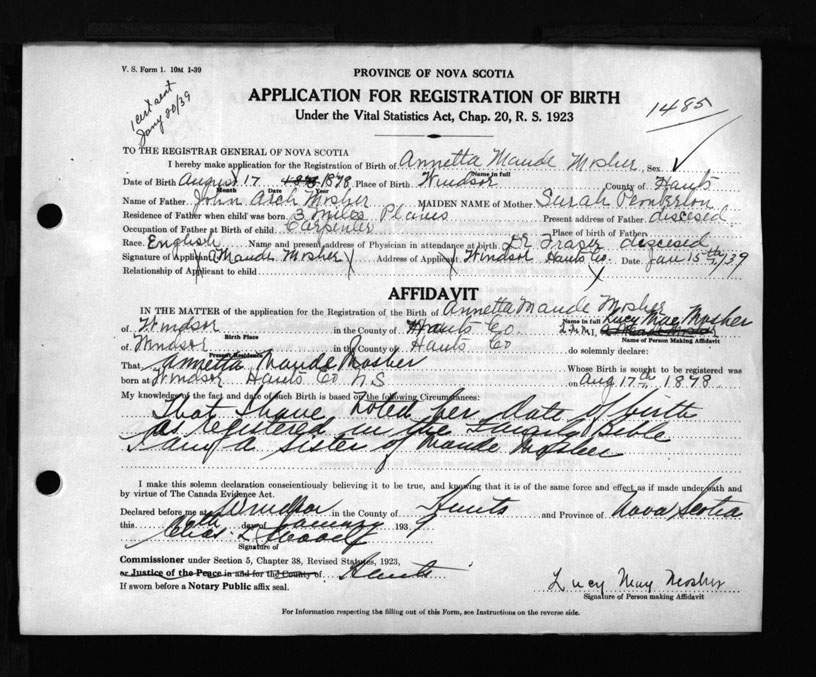 V. S. Form 1. 10M 1-39
1 cert sent
Jany 20/39
PROVINCE OF NOVA SCOTIA
APPLICATION FOR REGISTRATION OF BIRTH
1485
Under the Vital Statistics Act, Chap. 20, R. S. 1923
TO THE REGISTRAR GENERAL OF NOVA SCOTIA
I hereby make application for the Registration of Birth of Annetta Maude Mosher, Sex
Name in full
Date of Birth August 17 1878 Place of Birth Windsor County of Hants
Month Date Year
Name of Father John Arch Mosher MAIDEN NAME of Mother Sarah Pemberton
Residence of Father when child was born 3 Miles Plains Present address of Father disceased
Occupation of Father at Birth of child Carpenter Place of birth of Father
Race English Name and present address of Physician in attendance at birth Dr Fraser disceased
Signature of Applicant A Maude Mosher Address of Applicant Windsor Hants Co. Date Jan 15th/39
Relationship of Applicant to child
AFFIDAVIT
IN THE MATTER of the application for the Registration of the Birth of Annetta Maude Mosher
Name in full
of Windsor in the County of Hants Co I, Lucy May Mosher
Birth Place Name of Person Making Affidavit
of Windsor in the County of Hants Co do solemnly declare:
Present Residence
That Annetta Maude Mosher Whose Birth is sought to be registered was
born at Windsor Hants Co N.S on Aug 17th, 1878
My knowledge of the fact and date of such Birth is based on the following Circumstances:
That I have noted her date of birth
as registered in the Family Bible
I am a sister of Maude Mosher
I make this solemn declaration conscientiously believing it to be true, and knowing that it is of the same force and effect as if made under oath and
by virtue of The Canada Evidence Act.
Declared before me at Windsor in the County of Hants and Province of Nova Scotia
this day of January 1939
Chas.
Signature of
Commissioner under Section 5, Chapter 38, Revised Statutes, 1923,
or Justice of the Peace in and for the County of Hants
If sworn before a Notary Public affix seal.
Lucy May Mosher
Signature of Person making Affidavit
For Information respecting the filling out of this Form, see Instructions on the reverse side.